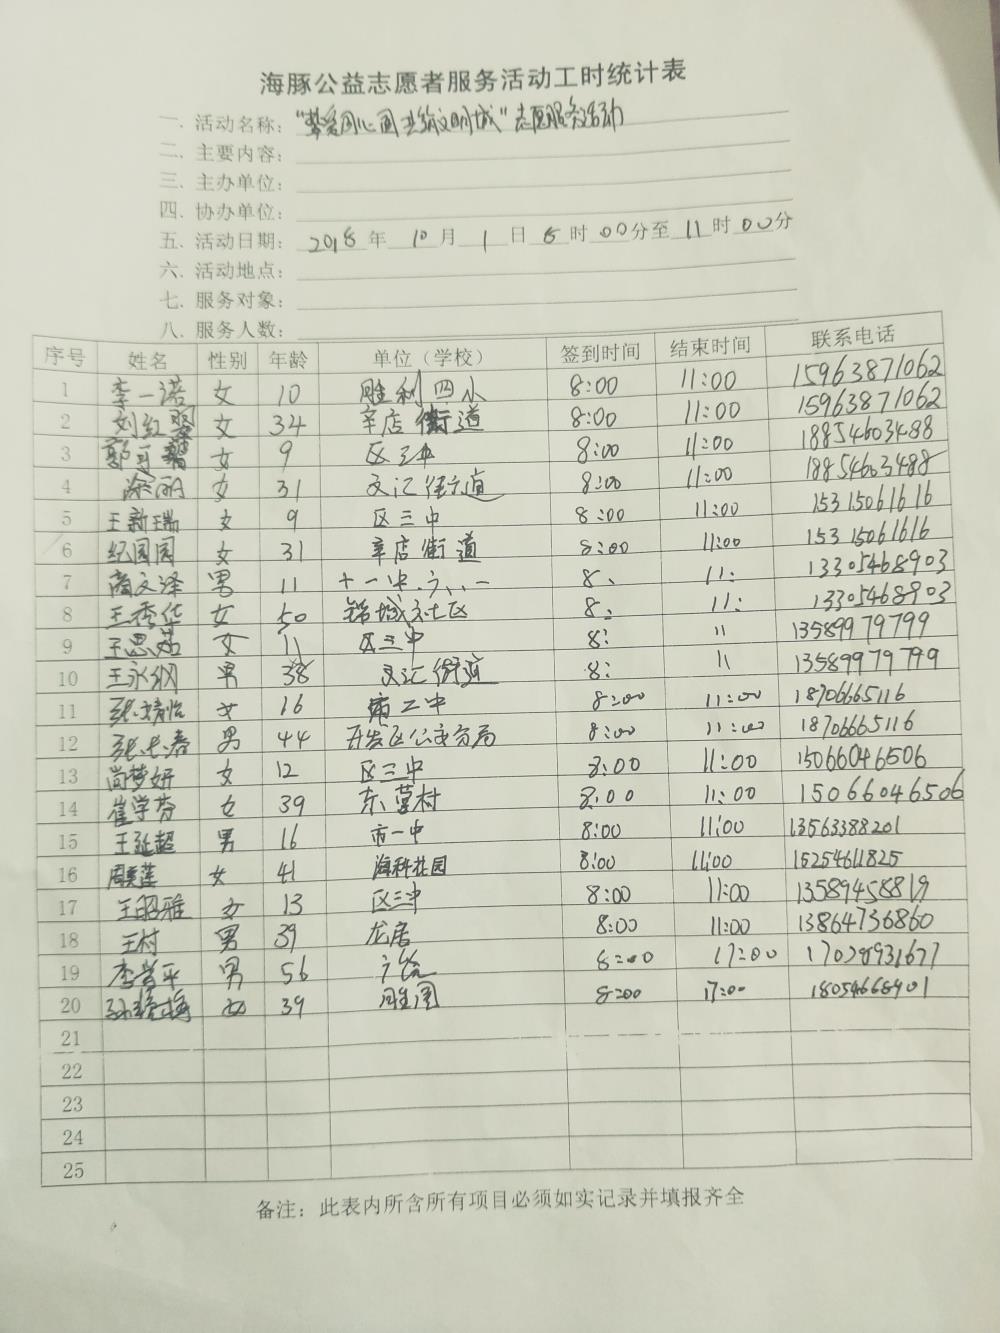 海豚公益志愿者服务活动工时统计表
一. 活动名称: "挚爱同心圆 共筑文明城"志愿服务活动
二. 主要内容:
三. 主办单位:
四. 协办单位:
五. 活动日期: 2018 年 10 月 1 日 8 时 00 分至 11 时 00 分
六. 活动地点:
七. 服务对象:
八. 服务人数:
序号 姓名 性别 年龄 单位（学校） 签到时间 结束时间 联系电话
1 李一诺 女 10 胜利四小 8:00 11:00 15963871062
2 刘红翠 女 34 辛店街道 8:00 11:00 15963871062
3 郭可馨 女 9 区三中 8:00 11:00 18854603488
4 涂丽 女 31 文汇街道 8:00 11:00 18854603488
5 王新瑞 女 9 区三中 8:00 11:00 15315061616
6 纪园园 女 31 辛店街道 8:00 11:00 15315061616
7 商文泽 男 11 十一中.六.一 8: 11: 13305468903
8 王秀华 女 50 锦城社区 8: 11: 13305468903
9 王思茹 女 11 区三中 8: 11 13589979799
10 王永纲 男 38 文汇街道 8: 11 13589979799
11 张婧怡 女 16 市二中 8:00 11:00 18706665116
12 张长春 男 44 开发区公安分局 8:00 11:00 18706665116
13 尚梦妍 女 12 区三中 8:00 11:00 15066046506
14 崔学芬 女 39 东营村 8:00 11:00 15066046506
15 王延超 男 16 市一中 8:00 11:00 13563388201
16 周美莲 女 41 海科花园 8:00 11:00 15254611825
17 王昭雅 女 13 区三中 8:00 11:00 13589458819
18 王村 男 39 龙居 8:00 11:00 13864736860
19 李 平 男 56 8:00 17:00 17028931677
20 孙 梅 女 39 8:00 17:00 18054668901
21
22
23
24
25
备注: 此表内所含所有项目必须如实记录并填报齐全